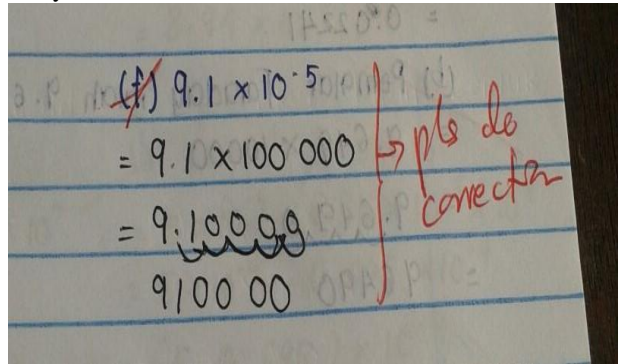 (f) 9.1 × 10⁻⁵
= 9.1 × 100 000
= 9.10000
910000
pls do
correction